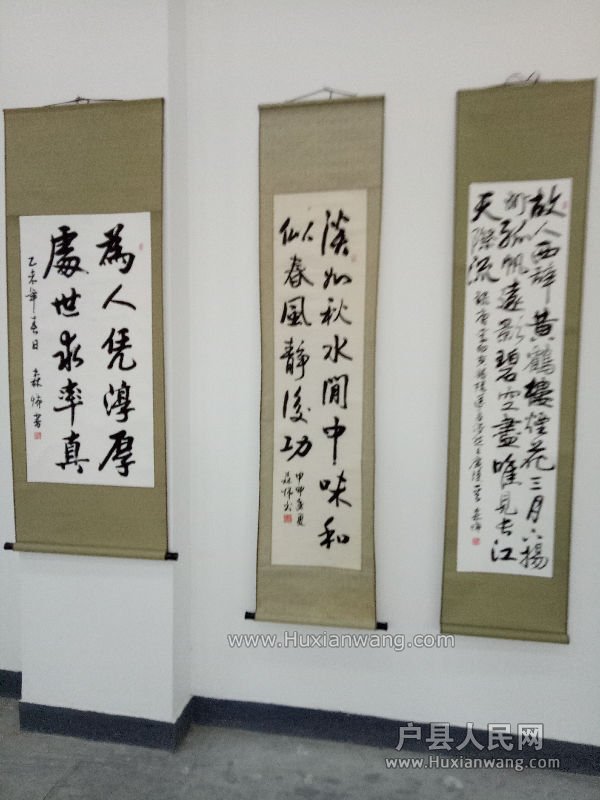 為人凭淳厚
處世求率真
乙未年春日
淡如秋水閒中味和
似春風靜後功
故人西辞黄鶴樓煙花三月下揚
州孤帆遠影碧空盡唯見長江
天際流
www.Huxianwang.com
户县人民网
www.Huxianwang.com